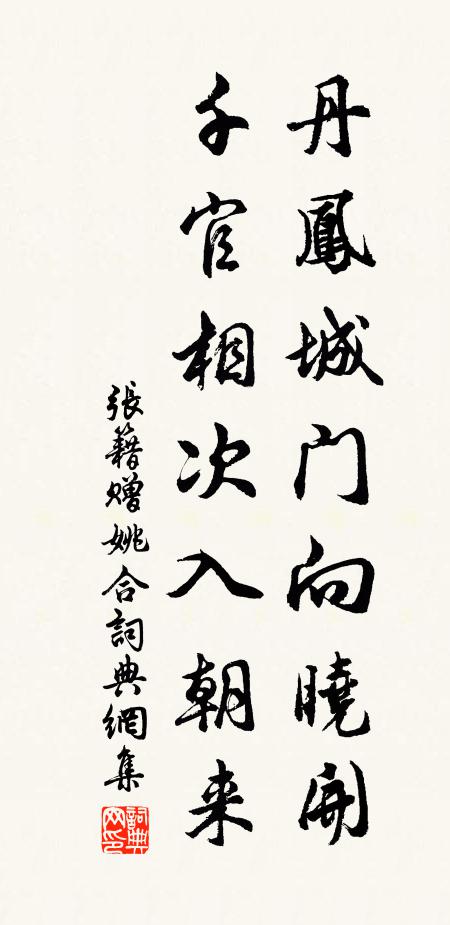 丹鳳城门向曉開
千官相次入朝来
張籍贈姚合詞典網集
詞典网印